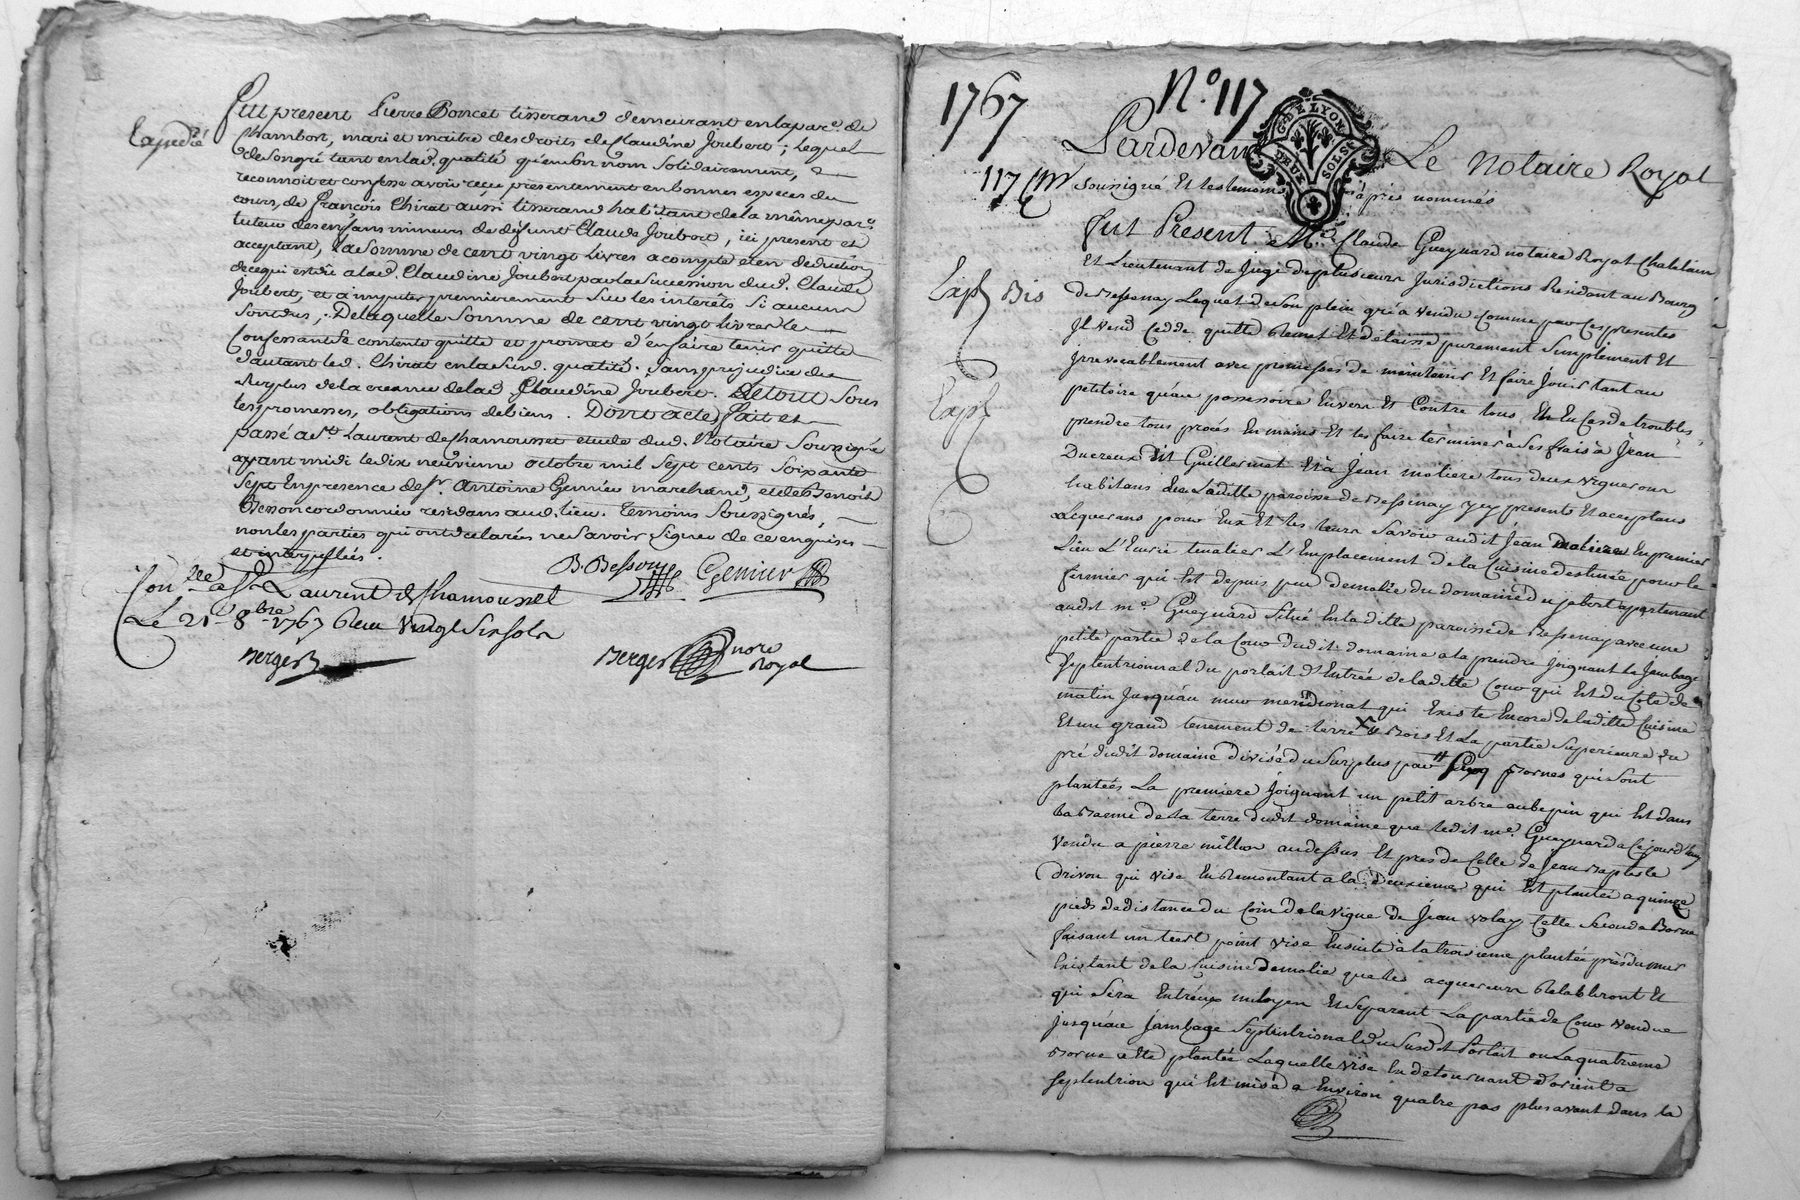 Expedié
Fut present Pierre Poncet tisserand demeurant en la par.e de
Chambost, mari et maitre des droits de Claudine Joubert; Lequel
de son gré tant en lad. qualité qu'en son nom solidairement,
reconnoit et confesse avoir reçu présentement en bonnes especes du
cours, de François Chirat aussi tisserand habitant de la même par.e
tuteur des enfans mineurs de défunt Claude Joubert, ici present et
acceptant, la somme de cent vingt livres a compte et en deduction
de ce qui est dû a lad. Claudine Joubert par la succession dud. Claude
Joubert, et a imputer premierement sur les interêts si aucuns
sont dus; De laquelle somme de cent vingt livres le
Confessant se contente quitte et promet d'en faire tenir quitte
d'autant led. Chirat en lad. qualité. sans prejudice du
surplus de la creance de lad Claudine Joubert. De tout sous
les promesses, obligations de biens. Dont acte, fait et
passé a St. Laurent de Chamousset etude dud. Notaire soussigné
avant midi le dix neuvieme octobre mil sept cents soixante
sept en presence de sr. Antoine Gemier marchand, et de Benoit
Besson cordonnier residans aud. lieu. temoins soussignés,
non les parties qui ont declarés ne savoir signer de ce enquises
et interpellées.
B. Besson Gemier
Con.lé a St. Laurent de Chamousset
Le 21 8bre 1767 Reçu vingt six sols
Berger
Berger nore
Royal
1767 N.o 117
G. DE LYON
DEUX SOLS
Pardevant Le Notaire Royal
117 soussigné Et les temoins après nommés
Fut Present Me. Claude Gueynard notaire Royal Chatelain
Et Lieutenant de Juge de plusieurs Jurisdictions Residant au Bourg
Exp Bis
de Bessenay Lequel de son plein gré a vendu comme par ces presentes
Il vend cedde quitte Remet Et délaisse purement simplement Et
Irrevocablement avec promesses de maintenir Et faire Jouir tant au
Exp
petitoire qu'au possessoire Envers Et Contre tous, Et En cas de troubles,
prendre tous procés En mains Et les faire terminer à ses frais à Jean
Ducreux dit Guillermet Et à Jean moliere tous deux vignerons
habitans de Ladite paroisse de Bessenay Icy presents Et acceptans
acquerans pour Eux Et les leurs Savoir audit Jean moliere En premier
Lieu L'Ecurie L'Emplacement de la Cuisine destinée pour le
fermier qui Est depuis peu demolie du domaine du appartenant
audit me. Gueynard Situé En la ditte paroisse de Bessenay avec une
petite partie de la Cour dudit domaine a la prendre Joignant le Jambage
Septentrional du portail d'Entrée de ladite Cour qui Est du Coté de
matin Jusqu'au mur meridional qui Existe Encore de ladite Cuisine
Et un grand tenement de terre Bois Et La partie Superieure du
pré dudit domaine divisé du Surplus par Cinq Bornes qui sont
plantées La premiere Joignant un petit arbre aubepin qui Est dans
la de la terre dudit domaine que ledit me. Gueynard a Cejourd'huy
vendu a pierre million au dessus Et près de Celle de Jean Baptiste
drivon qui vise En Remontant a la Deuxieme qui Est plantée a quinze
pieds de distance du Coin de la vigne de Jean volay Cette Seconde Borne
faisant un point vise Ensuite à la troisieme plantée près du mur
Existant de la Cuisine demolie que les acquereurs Retabliront Et
qui Sera Entreux mitoyen Et Separant La partie de Cour vendue
Jusqu'au Jambage Septentrional du Susdit Portail ou La quatrieme
Borne a Eté plantée Laquelle vise En detournant d'orient a
septentrion qui Est mise a Environ quatre pas plus avant dans la